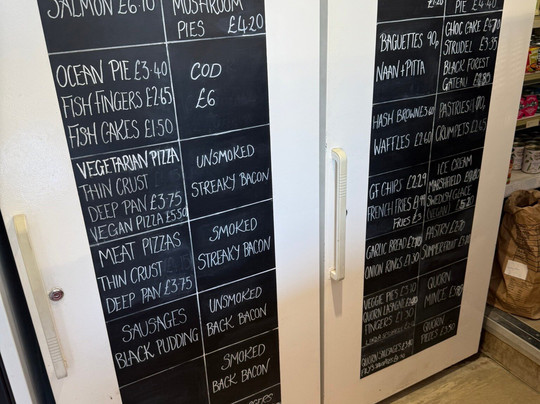 SALMON £6.10
MUSHROOM
PIES £4.20
OCEAN PIE £3.40
FISH FINGERS £2.65
FISH CAKES £1.50
COD
£6
VEGETARIAN PIZZA
THIN CRUST
DEEP PAN £3.75
VEGAN PIZZA £5.50
UNSMOKED
STREAKY BACON
MEAT PIZZAS
THIN CRUST
DEEP PAN £3.75
SMOKED
STREAKY BACON
SAUSAGES
BLACK PUDDING
UNSMOKED
BACK BACON
SMOKED
BACK BACON
PIE £4.40
BAGUETTES 90p
NAAN + PITTA
CHOC CAKE
STRUDEL £3.35
BLACK FOREST
GATEAU
HASH BROWNS
WAFFLES £2.60
PASTRIES
CRUMPETS £2.65
GF CHIPS £2.29
FRENCH FRIES
FRIES
ICE CREAM
MARSHFIELD
SWEDISH GLACE
VEGAN
GARLIC BREAD
ONION RINGS £1.30
PASTRY £2.70
SUMMER FRUIT
VEGGIE PIES
QUORN LASAGNE
FINGERS £1.30
QUORN
MINCE
QUORN SAUSAGES
QUORN
PIECES